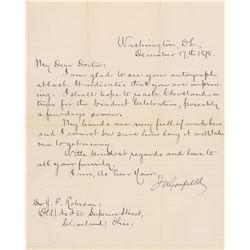 Washington, D.C.
December 17th 1878.
My Dear Doctor:
I am glad to see your autograph
at last. It indicates that you are improv-
ing. I shall hope to reach Cleveland in
time for the Viaduct Celebration, possibly
a few days sooner.
My hands are very full of work here
and I cannot be sure how long it will take
me to get away.
With kindest regards and love to
all your family,
I am, As Ever Yours,
J.A. Garfield
Dr. J. P. Robison:
(Old) No 251 Superior Street,
Cleveland, Ohio.